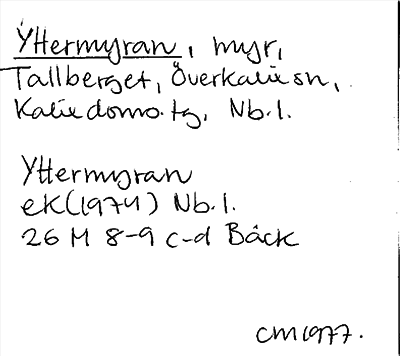 Yttermyran, myr,
Tallberget, Överkalix sn,
Kalix doms.tg, Nb.l.
Yttermyran
ek(1974) Nb.l.
26 M 8-9 c-d Bäck
CM 1977.